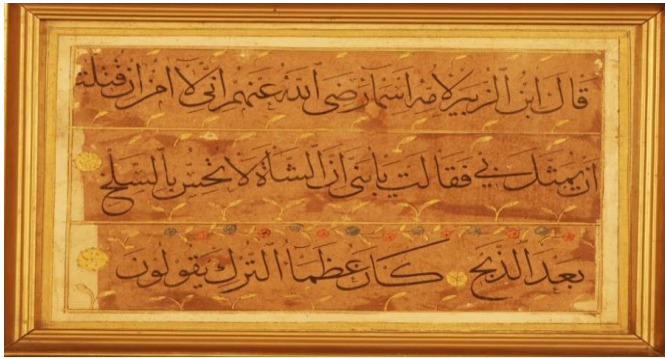 قَالَ ابْنُ الزُّبَيْرِ لِأُمِّهِ أَسْمَاءَ رَضِيَ اللَّهُ عَنْهُمْ إِنِّي لَا آمَنُ إِنْ قُتِلْتُ
أَنْ يُمَثَّلَ بِي فَقَالَتْ يَا بُنَيَّ إِنَّ الشَّاةَ لَا تُحِسُّ بِالسَّلْخِ
بَعْدَ الذَّبْحِ كَانَ عُظَمَاءُ التُّرْكِ يَقُولُونَ